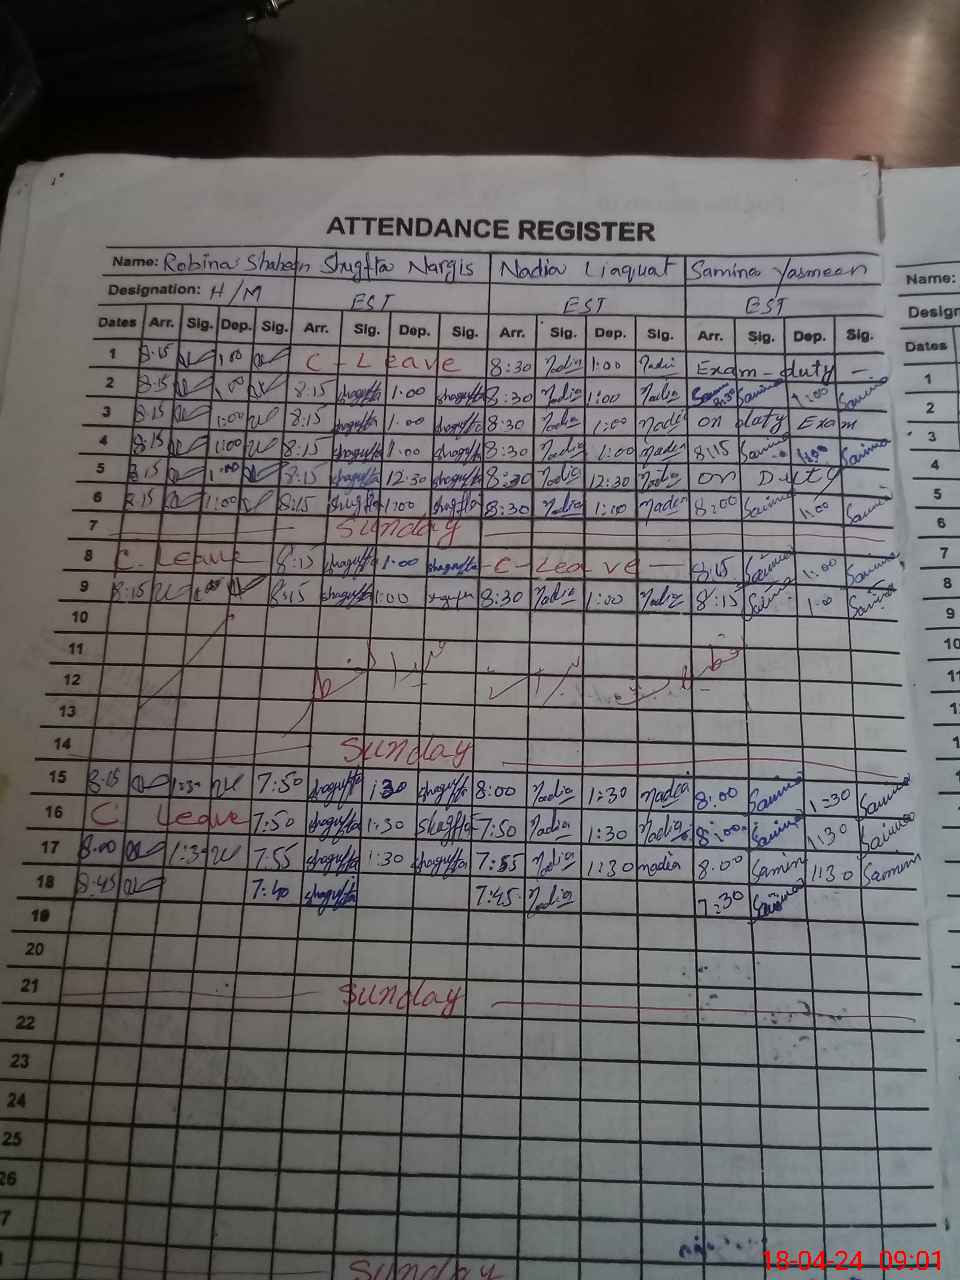 ATTENDANCE REGISTER
Name: Robina Shaheen Shugfta Nargis Nadia Liaquat Samina Yasmeen
Name:
Designation: H/M EST EST EST
Design
Dates Arr. Sig. Dep. Sig. Arr. Sig. Dep. Sig. Arr. Sig. Dep. Sig. Arr. Sig. Dep. Sig.
Dates
1 8:15 1:00 C-Leave 8:30 Nadia 1:00 Nadia Exam-duty -
2 8:15 1:00 8:15 shagufta 1:00 shagufta 8:30 Nadia 1:00 Nadia 8:30 Samina 1:00 Samina
3 8:15 1:00 8:15 shagufta 1:00 shagufta 8:30 Nadia 1:00 Nadia on duty Exam
4 8:15 1:00 8:15 shagufta 1:00 shagufta 8:30 Nadia 1:00 Nadia 8:15 Samina 1:00 Samina
5 8:15 1:00 8:15 shagufta 12:30 shagufta 8:30 Nadia 12:30 Nadia on Duty
6 8:15 1:00 8:15 shagufta 1:00 shagufta 8:30 Nadia 1:00 Nadia 8:00 Samina 1:00 Samina
7 Sunday
8 C. Leave 8:15 shagufta 1:00 shagufta C-Leave 8:15 Samina 1:00 Samina
9 8:15 1:00 8:15 shagufta 1:00 8:30 Nadia 1:00 Nadia 8:15 Samina 1:00 Samina
10
11
12
13
14 Sunday
15 8:15 1:30 7:50 shagufta 1:30 shagufta 8:00 Nadia 1:30 Nadia 8:00 Samina 1:30 Samina
16 C Leave 7:50 shagufta 1:30 shagufta 7:50 Nadia 1:30 Nadia 8:00 Samina 1:30 Samina
17 8:00 1:30 7:55 shagufta 1:30 shagufta 7:55 Nadia 1:30 nadia 8:00 Samina 1:30 Samina
18 8:45 7:40 shagufta 7:45 Nadia 7:30 Samina
19
20
21 Sunday
22
23
24
25
26
7
Sunday
1
2
3
4
5
6
7
8
9
10
11
12
18-04-24 09:01